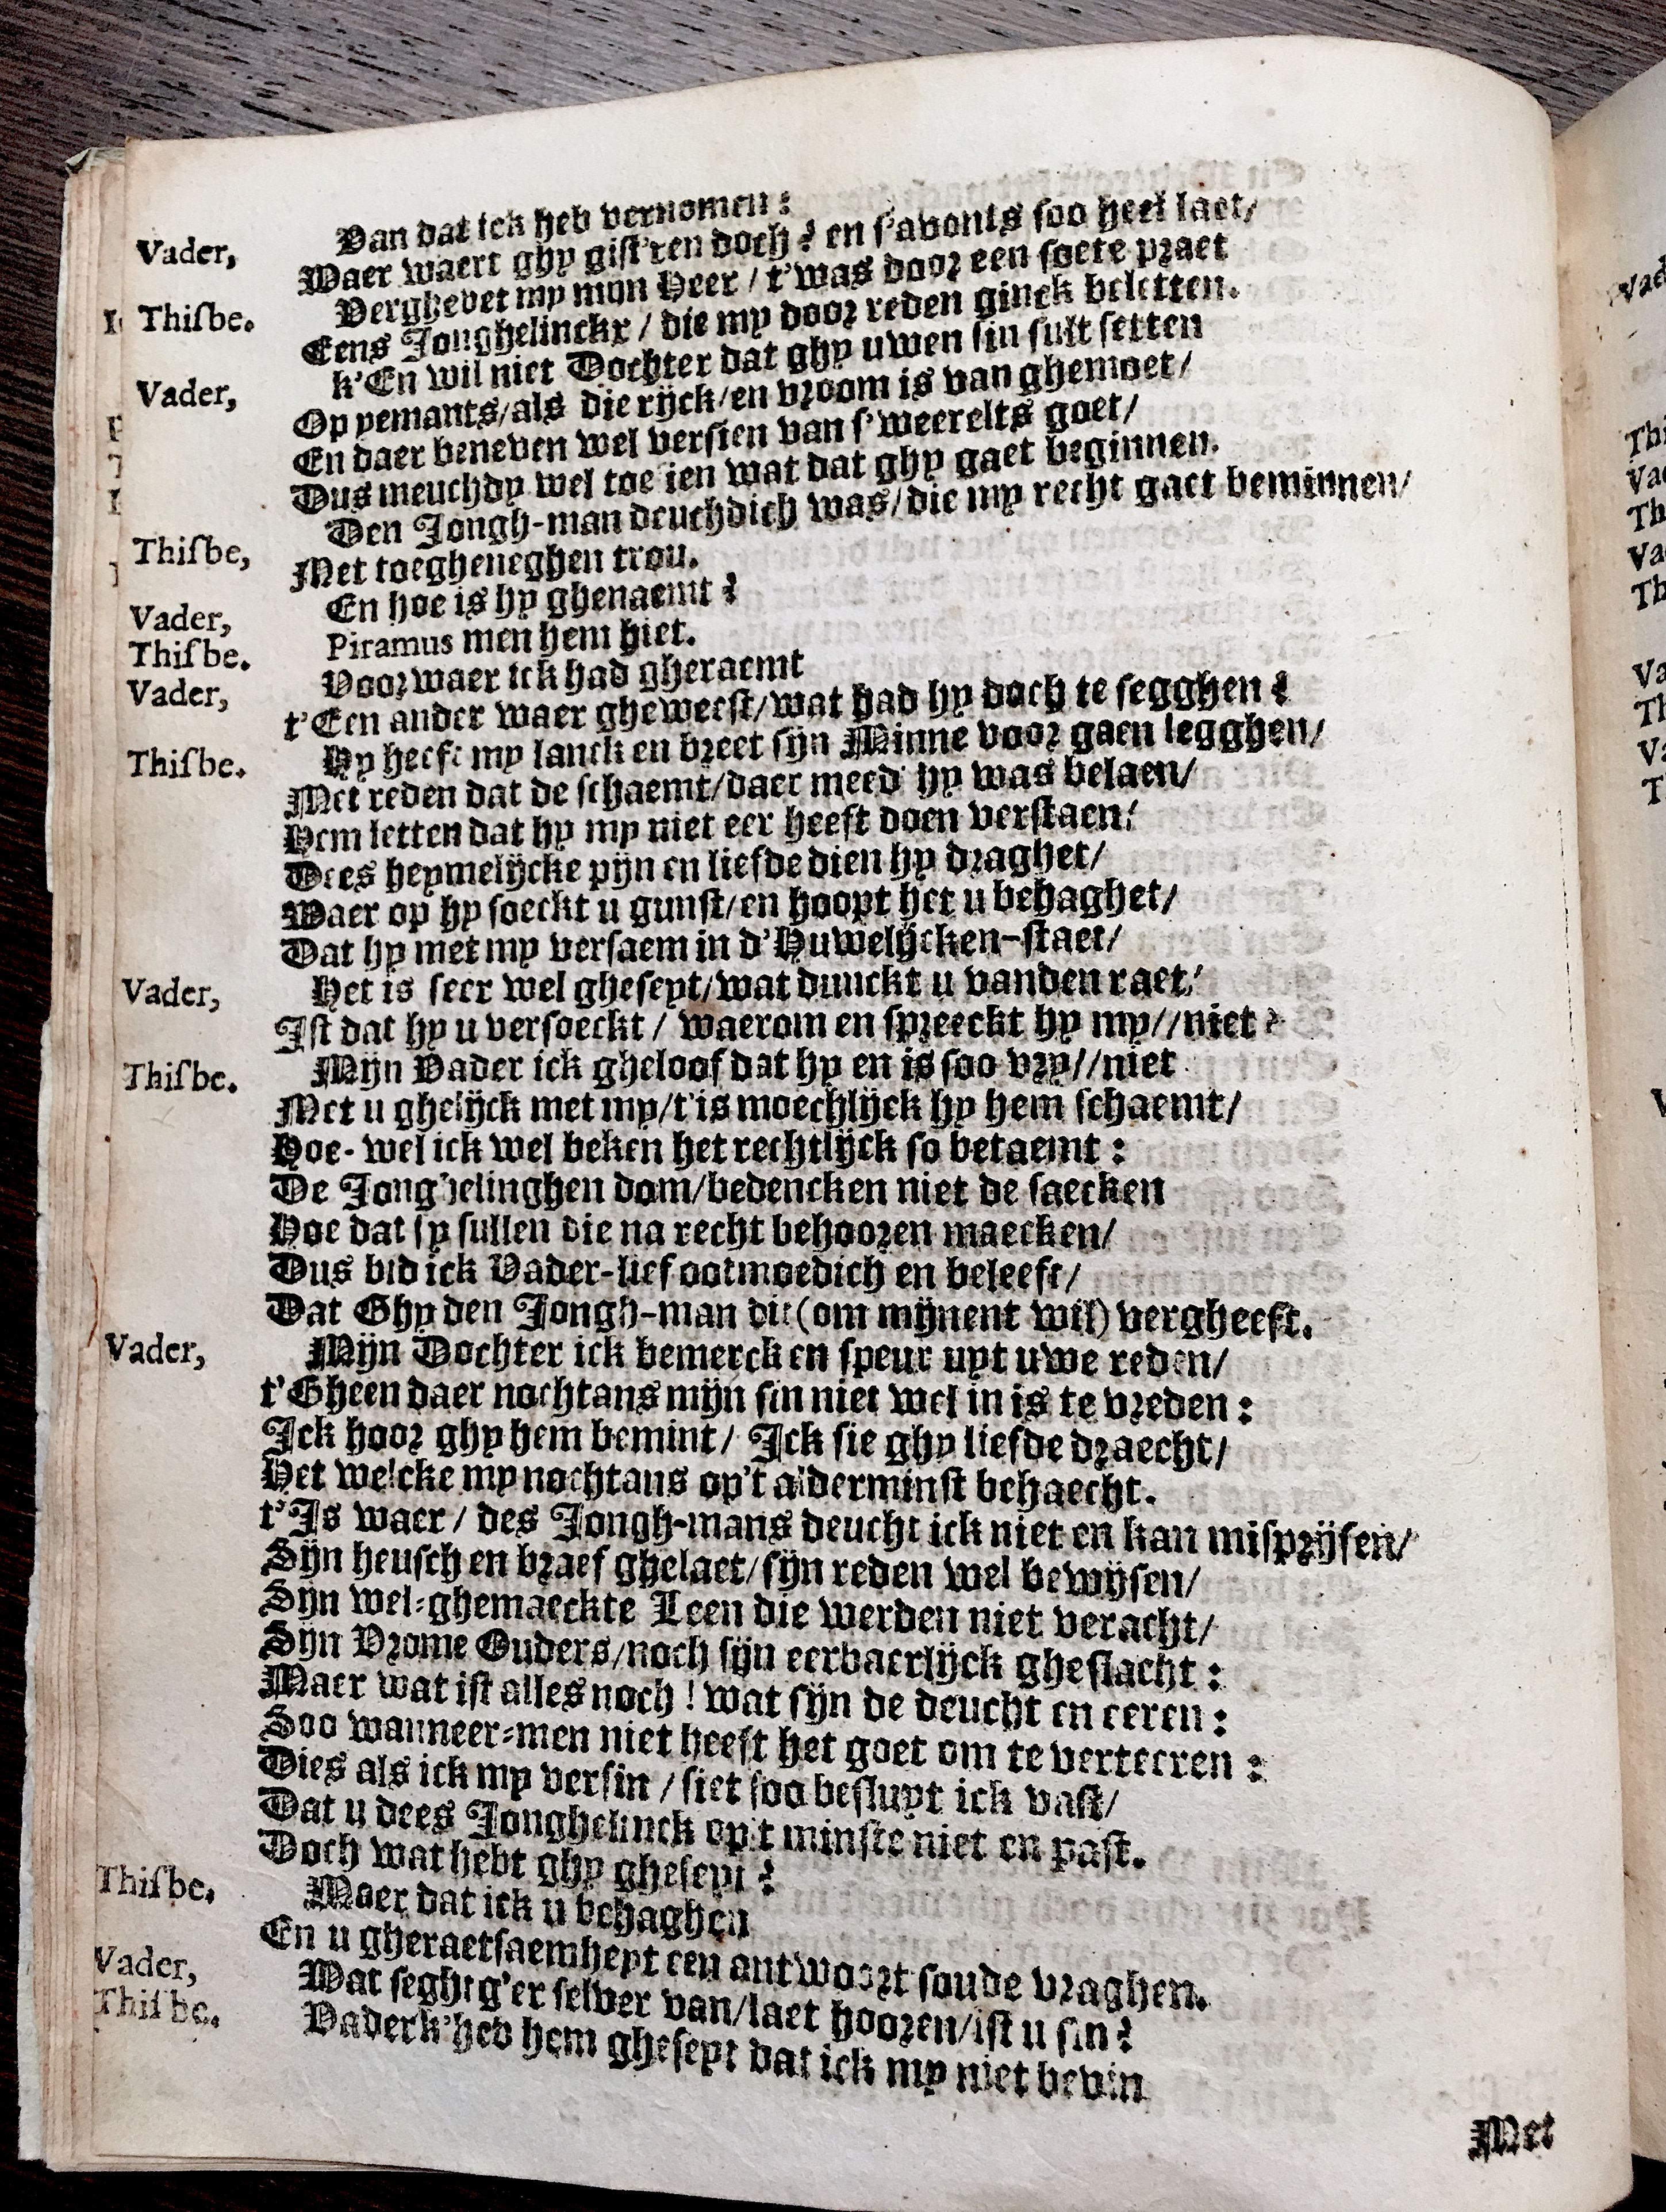 Vader, Van dat ick heb vernomen:
Waer waert ghy gist'ren doch? en s'avonts soo heel laet/
Thisbe. Verghevet my mijn Heer / t'was door een soete praet
Eens Jonghelinckx / die my door reden ginck beletten.
Vader, k'En wil niet Dochter dat ghy uwen sin sult setten
Op yemants/als die rijck/en vroom is van ghemoet/
En daer beneven wel versien van s'weerelts goet/
Dus meuchdy wel toe sien wat dat ghy gaet beginnen.
Thisbe, Den Jongh-man deuchdich was/die my recht gaet beminnen/
Met toegheneghen trou.
Vader, En hoe is hy ghenaemt?
Thisbe. Piramus men hem hiet.
Vader, Voorwaer ick had gheraemt
t'Een ander waer gheweest/wat had hy doch te segghen?
Thisbe. Hy heeft my lanck en breet sijn Minne voor gaen legghen/
Met reden dat de schaemt/daer meed' hy was belaen/
Hem letten dat hy my niet eer heeft doen verstaen/
Dees heymelijcke pijn en liefde dien hy draghet/
Waer op hy soeckt u gunst/en hoopt het u behaghet/
Dat hy met my versaem in d'Huwelijcken-staet/
Vader, Het is seer wel gheseyt/wat dunckt u vanden raet/
Ist dat hy u versoeckt / waerom en spreeckt hy my//niet?
Thisbe. Mijn Vader ick gheloof dat hy en is soo vry//niet
Met u ghelijck met my/t'is moechlijck hy hem schaemt/
Hoe-wel ick wel beken het rechtlijck so betaemt:
De Jonghelinghen dom/bedencken niet de saecken
Hoe dat sy sullen die na recht behooren maecken/
Dus bid ick Vader-lief ootmoedich en beleeft/
Dat Ghy den Jongh-man dit (om mijnent wil) vergheeft.
Vader, Mijn Dochter ick bemerck en speur uyt uwe reden/
t'Gheen daer nochtans mijn sin niet wel in is te vreden:
Ick hoor ghy hem bemint/ Ick sie ghy liefde draecht/
Het welcke my nochtans op't alderminst behaecht.
t'Is waer / des Jongh-mans deucht ick niet en kan misprijsen/
Sijn heusch en braef ghelaet/sijn reden wel bewijsen/
Sijn wel-ghemaeckte Leen die werden niet veracht/
Sijn Vrome Ouders/noch sijn eerbaerlijck gheslacht:
Maer wat ist alles noch! wat sijn de deucht en eeren:
Soo wanneer-men niet heeft het goet om te verteeren:
Dies als ick my versin / siet soo besluyt ick vast/
Dat u dees Jonghelinck op't minste niet en past.
Doch wat hebt ghy gheseyt?
Thisbe. Maer dat ick u behaghen
En u gheraetsaemheyt een antwoort soude vraghen.
Vader, Wat seght g'er selver van/laet hooren/ist u sin?
Thisbe. Vader k'heb hem gheseyt dat ick my niet bevin
Met